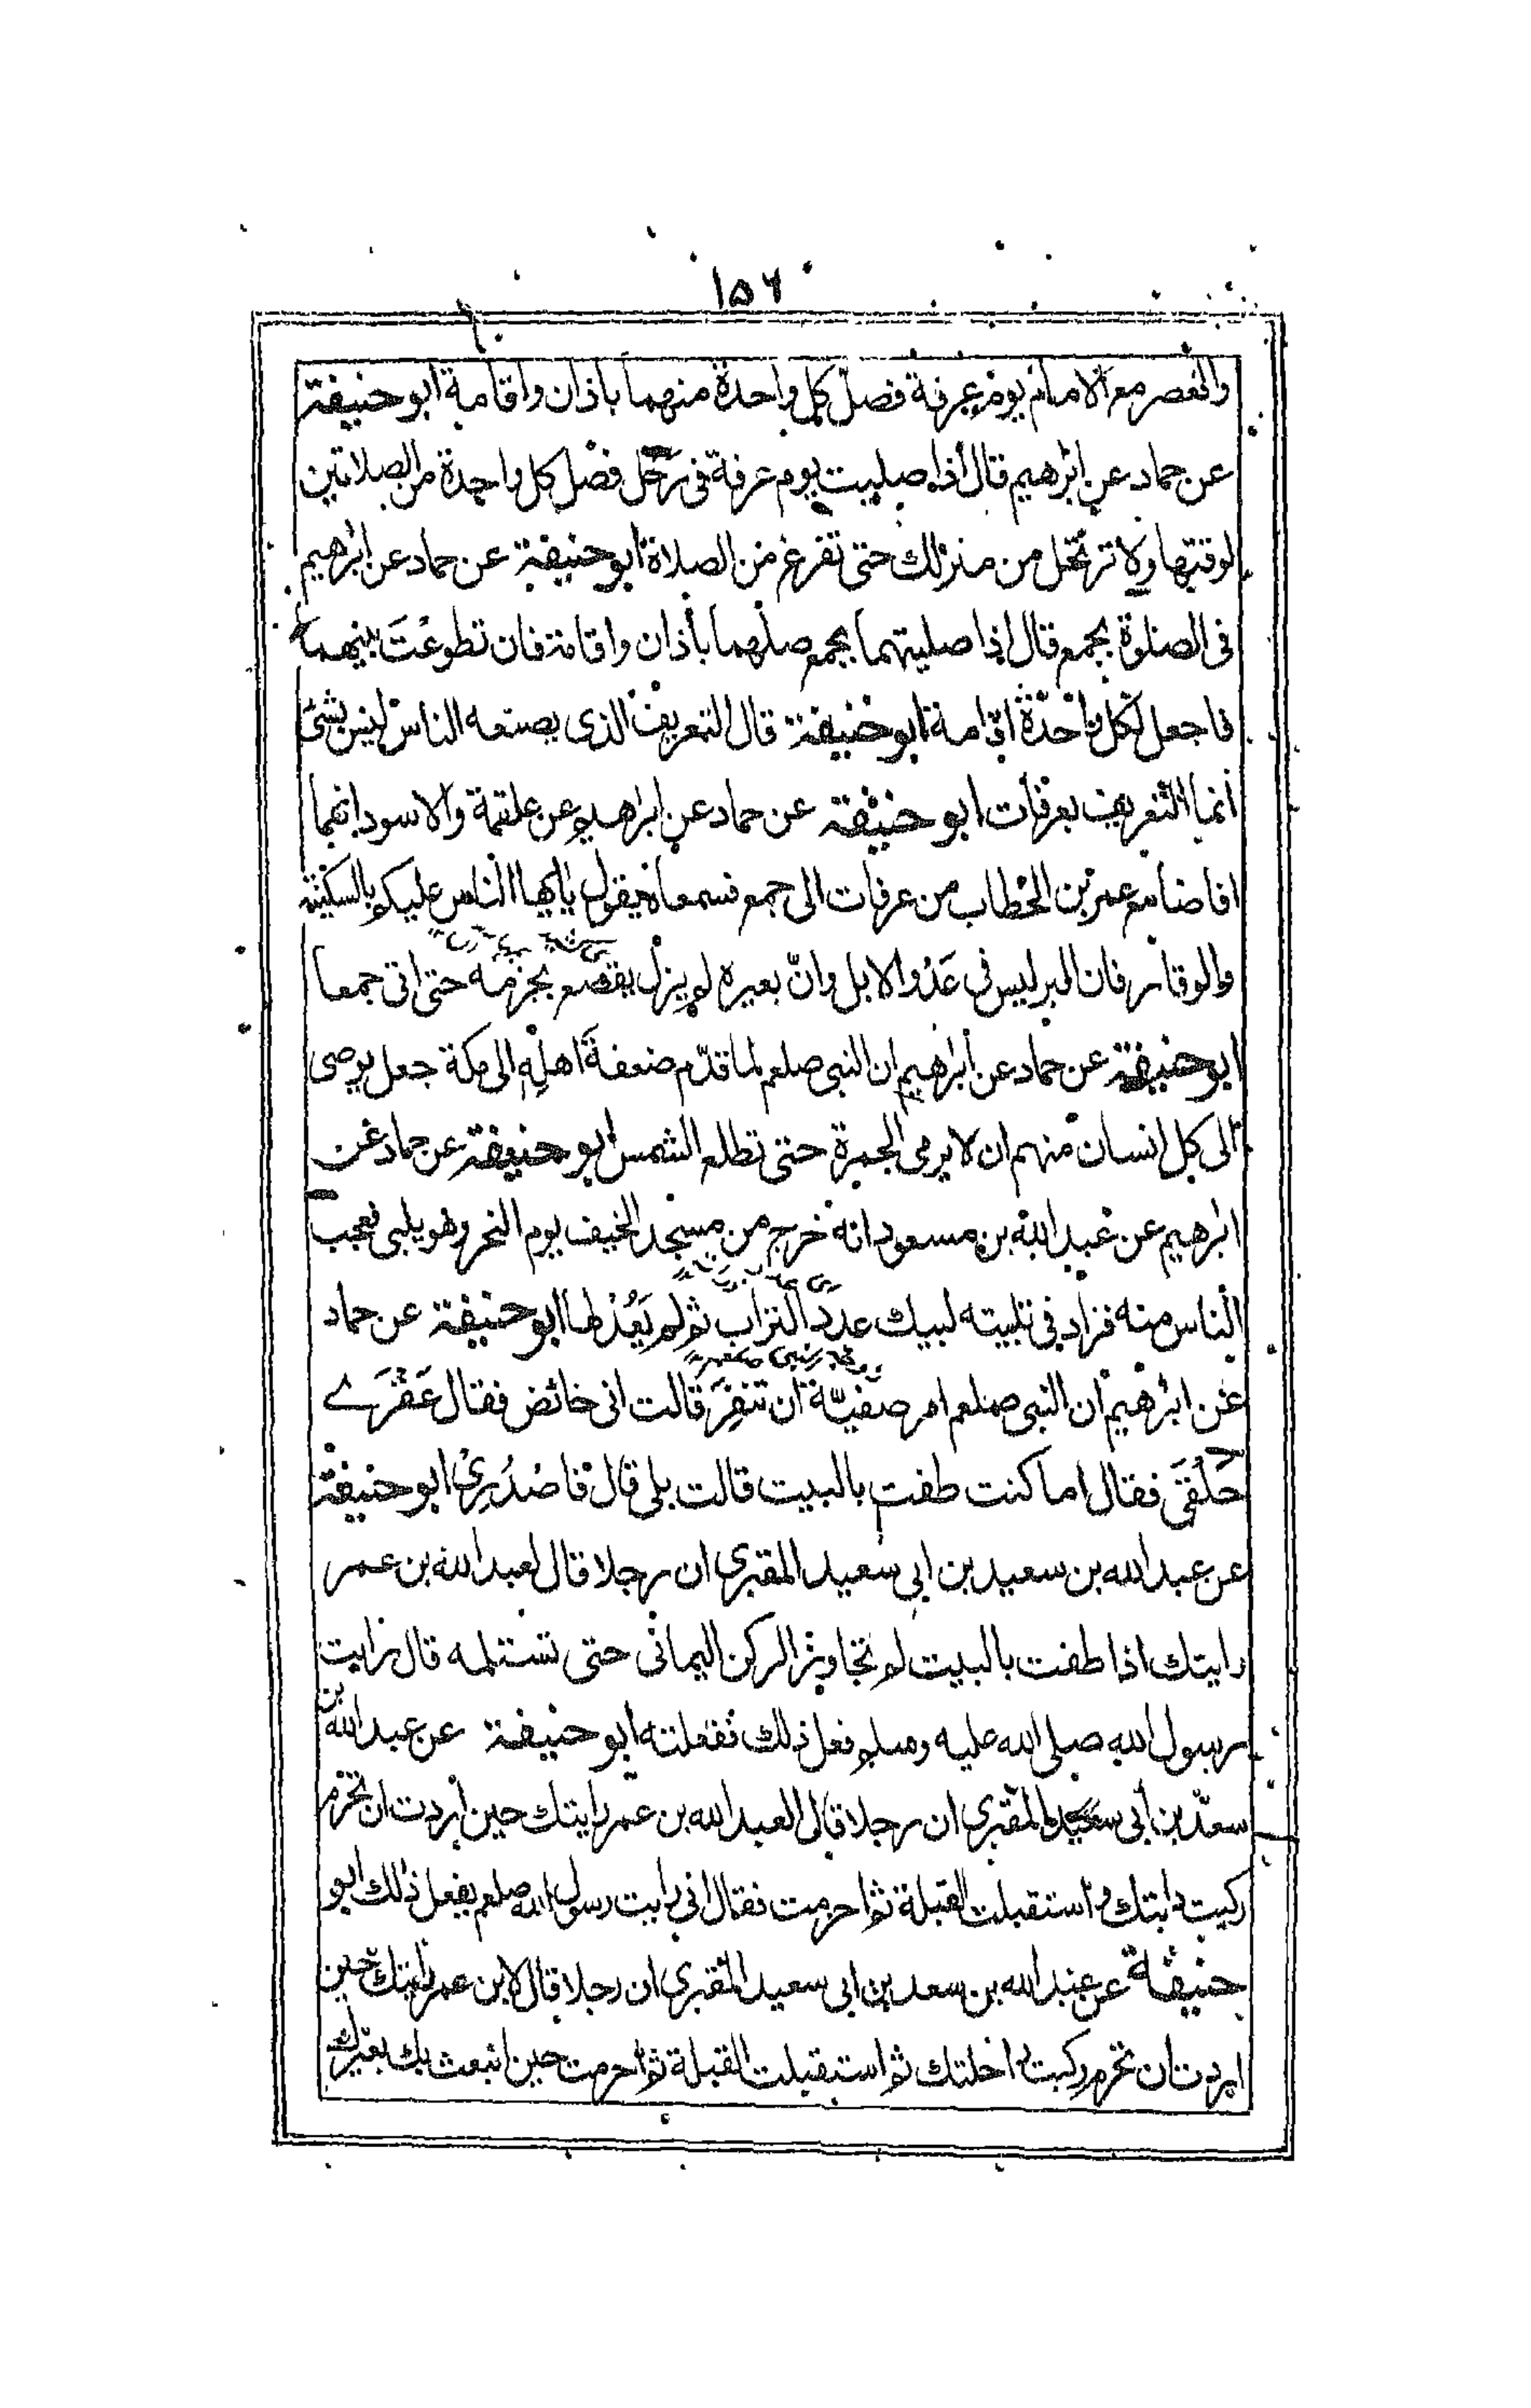 ١٥٦
والعصر مع الامام يوم عرفة فصل كل واحدة منهما باذان واقامة ابو حنيفة
عن حماد عن ابرهيم قال اذا صليت يوم عرفة فى رحل فصل كل واحدة من الصلاتين
لوقتها ولا ترتحل من منزلك حتى تفرغ من الصلاة ابو حنيفة عن حماد عن ابرهيم
فى الصلوة بجمع قال اذا صليتهما بجمع صلهما باذان واقامة فان تطوعت بينهما
فاجعل لكل واحدة اقامة ابو حنيفة قال التعريف الذى يصنعه الناس ليس بشئ
انما التعريف بعرفات ابو حنيفة عن حماد عن ابراهيم عن علقمة والاسود انهما
افاضا مع عمر بن الخطاب من عرفات الى جمع فسمعاه يقول يايها الناس عليكم بالسكينة
والوقار فان البر ليس فى عَدْو الابل وانّ بعيره لم يزل يقصع بجرته حتى اتى جمعا
ابو حنيفة عن حماد عن ابرهيم ان النبى صلعم لما قدّم ضعفة اهله الى مكة جعل يوصى
الى كل انسان منهم ان لا يرمى الجمرة حتى تطلع الشمس ابو حنيفة عن حماد عن
ابرهيم عن عبد الله بن مسعود انه خرج من مسجد الخيف يوم النحر وهو يلبى فعجب
الناس منه فزاد فى تلبيته لبيك عدد التراب ثم لم يَعُدْ لها ابو حنيفة عن حماد
عن ابرهيم ان النبى صلعم امر صفيّة ان تنفِرَ قالت انى حائض فقال عَقْرَے
حَلْقَى فقال اما كنت طفت بالبيت قالت بلى قال فاصْدُرِىْ ابو حنيفة
عن عبد الله بن سعيد بن ابى سعيد المقبرى ان رجلا قال لعبد الله بن عمر
رايتك اذا طفت بالبيت لم تجاوز الركن اليمانى حتى تستلمه قال رايت
رسول الله صلى الله عليه وسلم فعل ذلك ففعلته ابو حنيفة عن عبد الله بن
سعد بن ابى سعيد المقبرى ان رجلا قال لعبد الله بن عمر رايتك حين اردت ان تحرم
ركبت دابتك واستقبلت القبلة ثم احرمت فقال انى رايت رسول الله صلعم يفعل ذلك ابو
حنيفة عن عبد الله بن سعد بن ابى سعيد المقبرى ان رجلا قال لابن عمر رايتك حين
اردت ان تحرم ركبت راحلتك ثم استقبلت القبلة ثم احرمت حين انبعث بك بعيرك